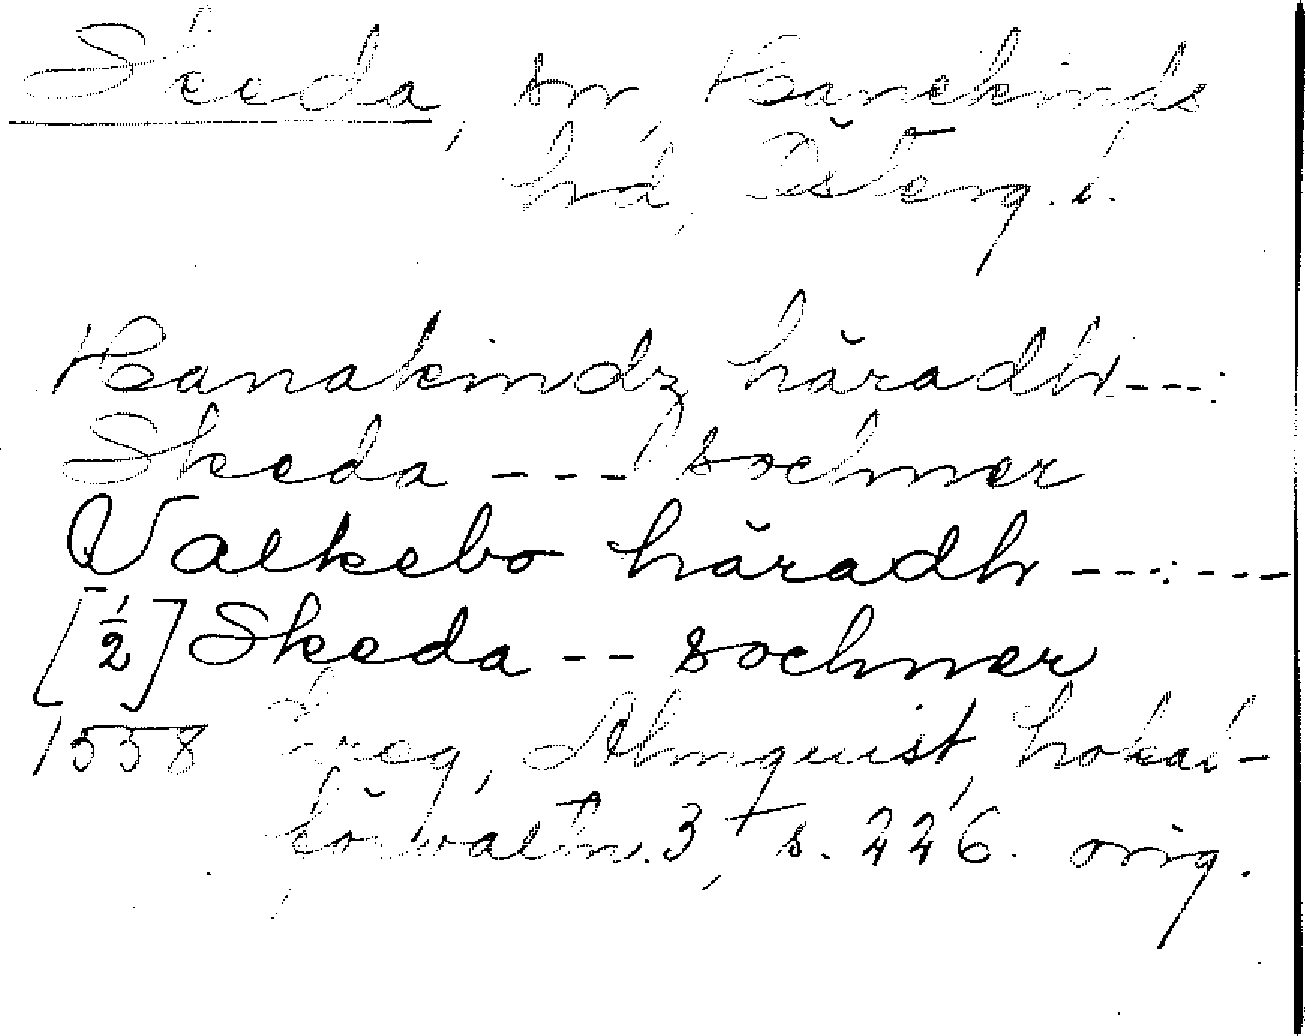 Skeda, sn, Hanekinds
hd, Österg. l.
Hanakindz häradh ---:
Skeda --- sochner
Valkebo häradh ---:---
[½] Skeda -- sochner
1558 freg, Almquist, Lokal-
förvaltn. 3, s. 226. orig.